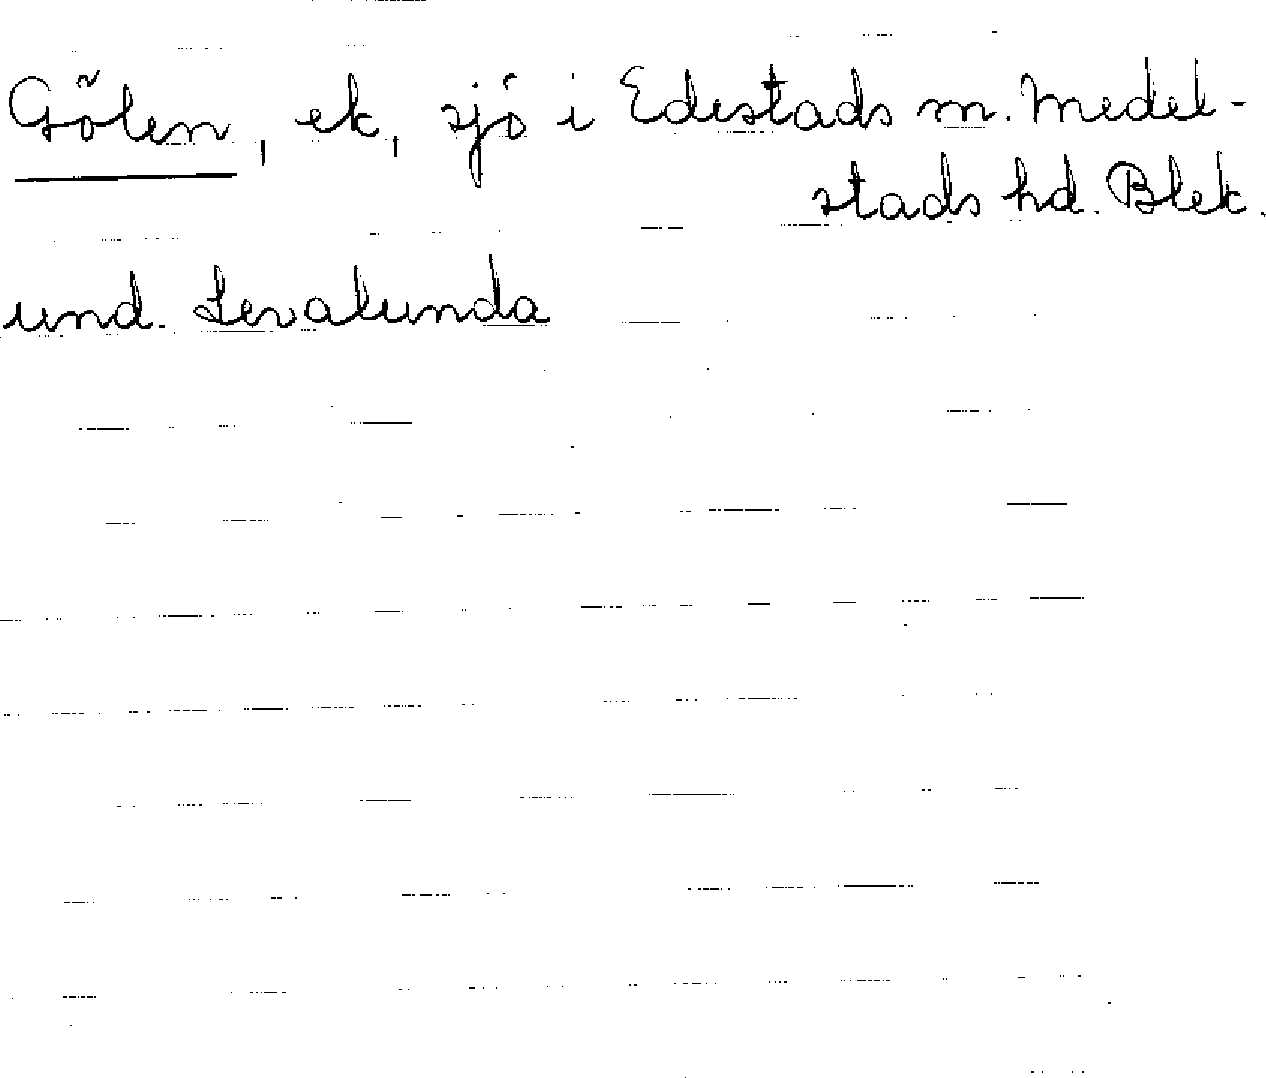 Gölen, ek, sjö i Edestads sn. Medel-
stads hd. Blek.
und. Levalunda